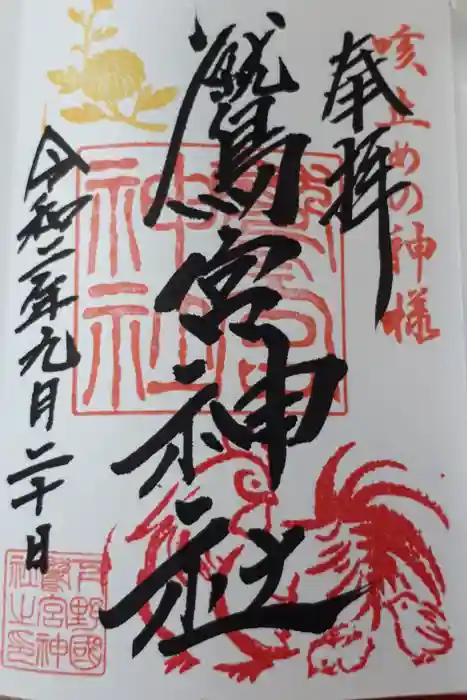 咳止めの神様
奉拝
鷲宮神社
鷲宮
神社
令和二年九月二十日
下野國
鷲宮神
社之印